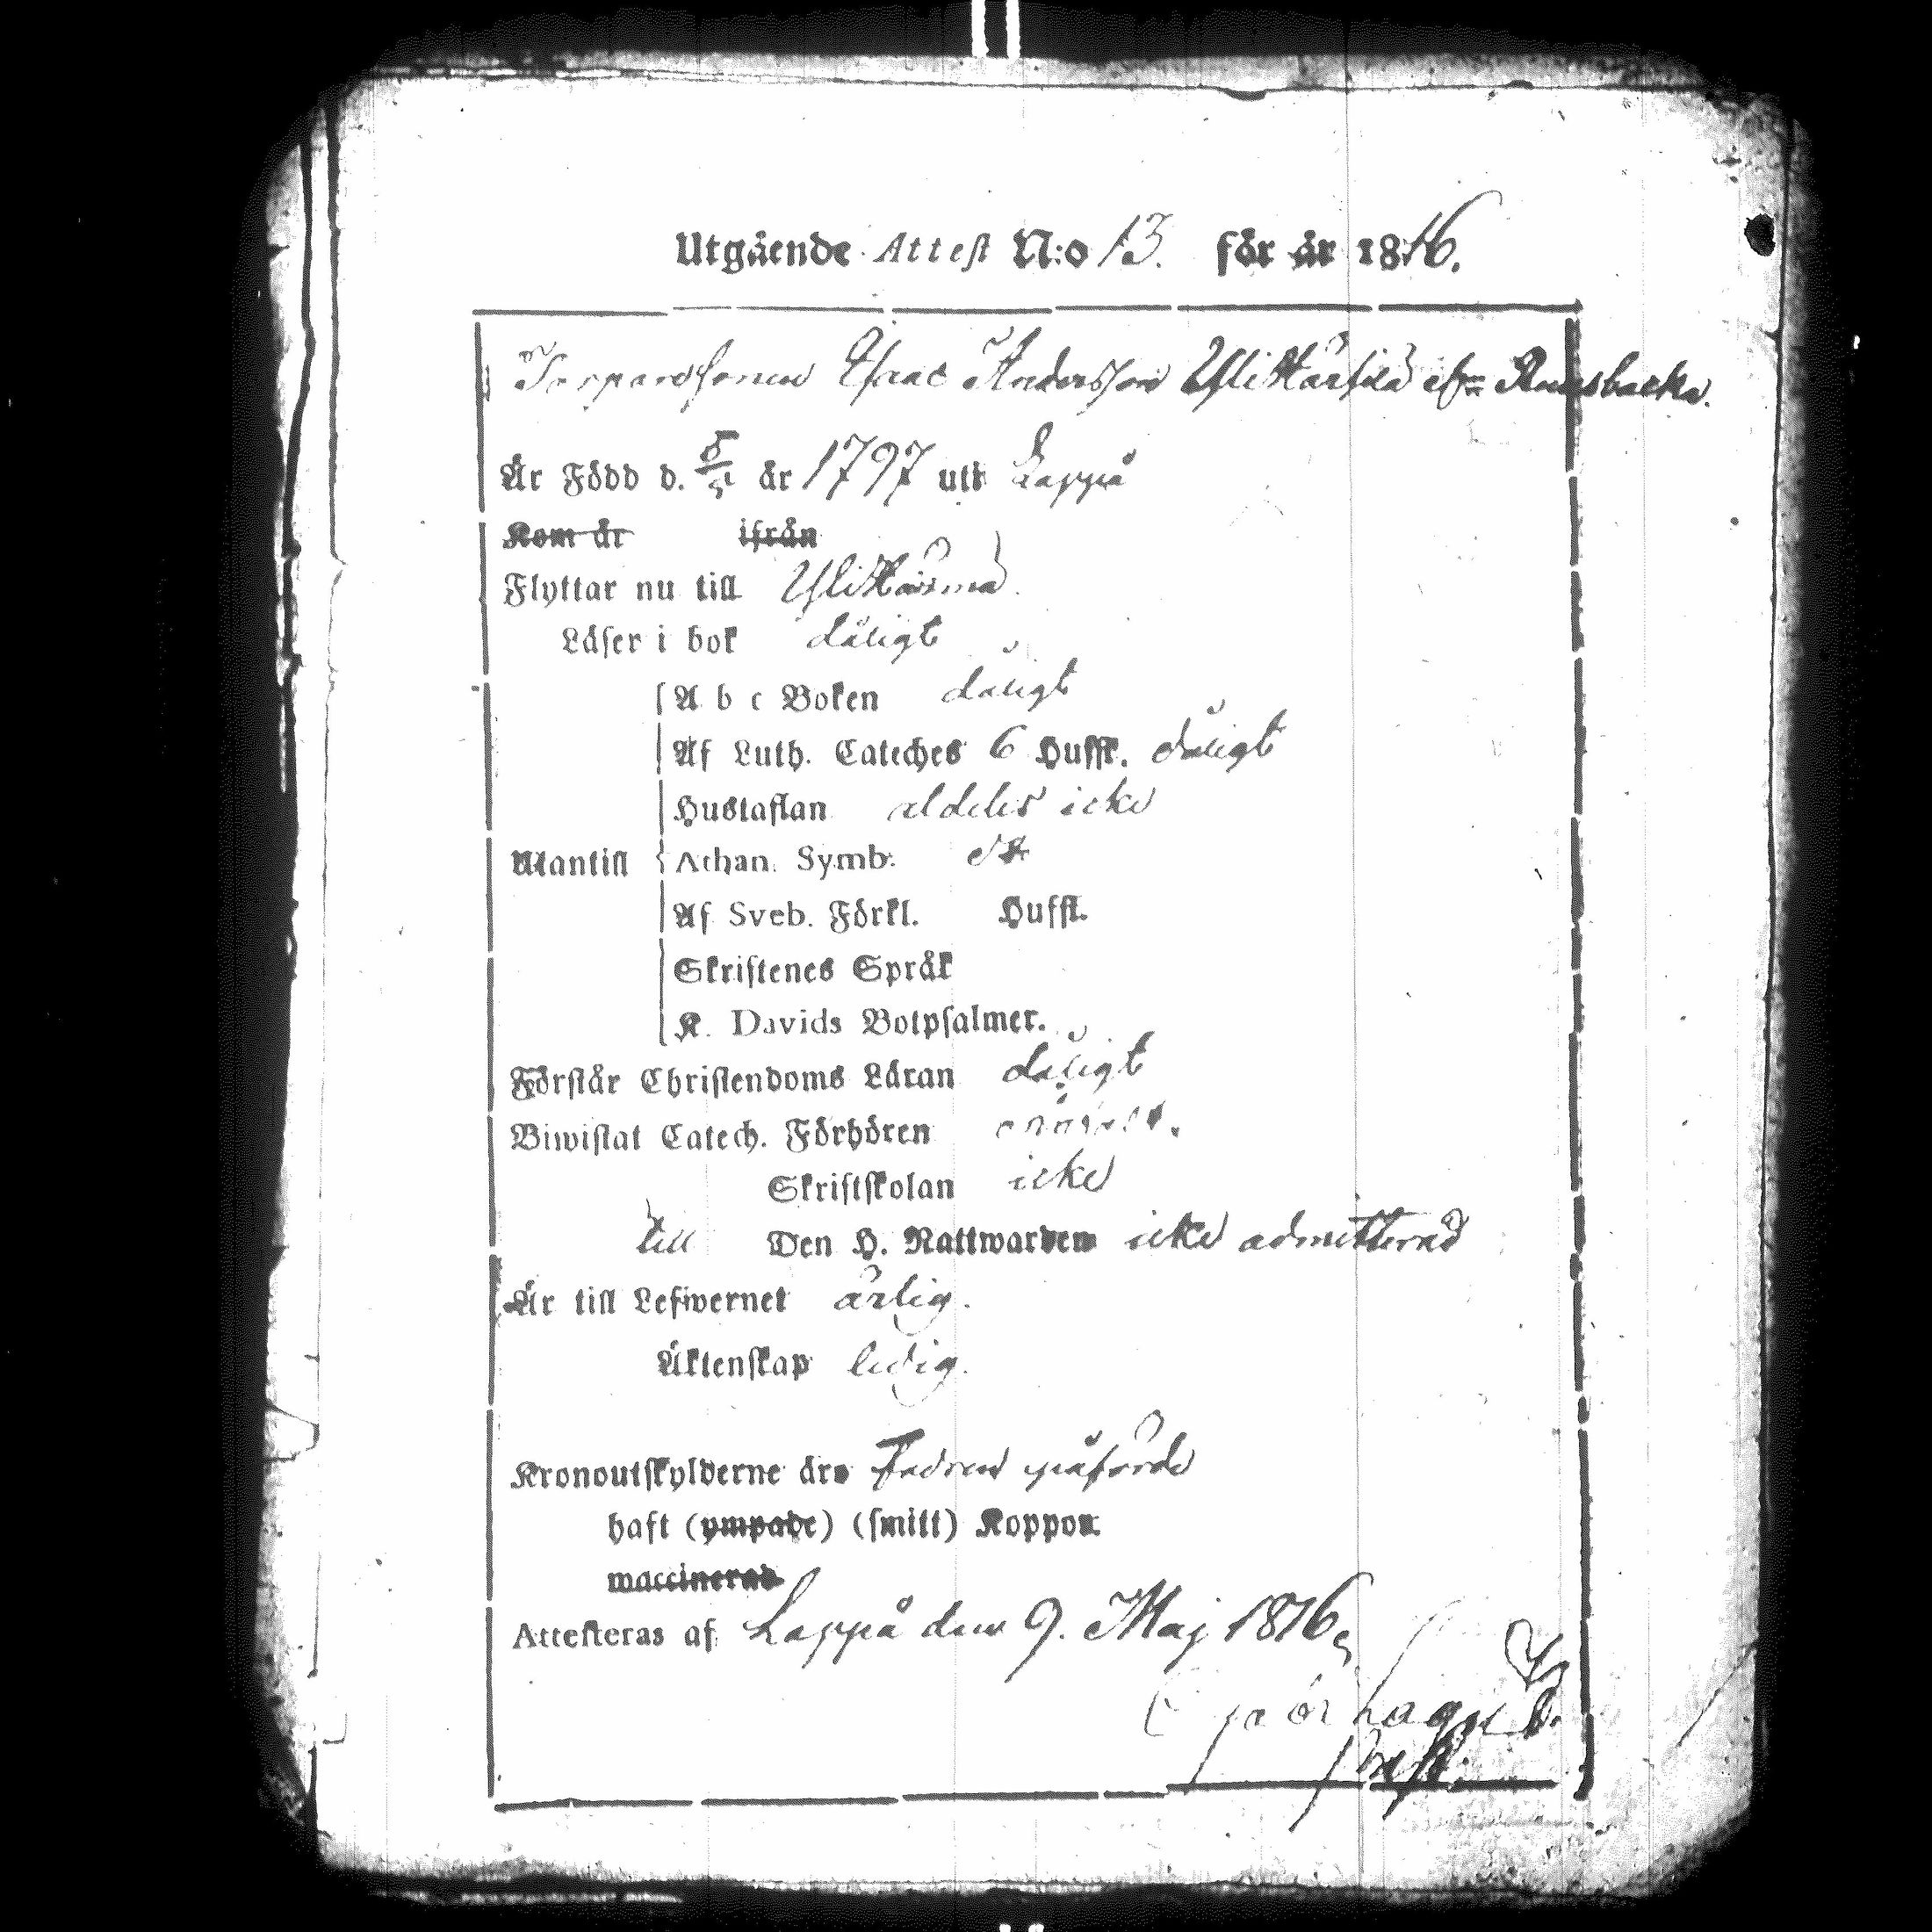 Utgående Attest N:o 13. för år 1816.
Torparesonen Isaac Andersson ifrn
Är Född d. 5/5 år 1797 uti Lappå
Kom år ifrån
Flyttar nu till
Läser i bok dåligt
A b c Boken dåligt
Af Luth. Cateches 6 Hufst. dåligt
Hustaflan aldeles icke
Utantill Athan. Symb. do
Af Sveb. Förkl. Hufst.
Skriftenes Språk
K. Davids Botpsalmer.
Förstår Christendoms Läran dåligt
Biwistat Catech. Förhören
Skriftskolan icke
till Den H. Nattwarden icke admitterad
Är till Lefwernet ärlig.
Äktenskap ledig.
Kronoutskylderne äro Fadren påförde
haft (ympade) (smitt) Koppor
waccinerad
Attesteras af Lappå den 9. Maj 1816.